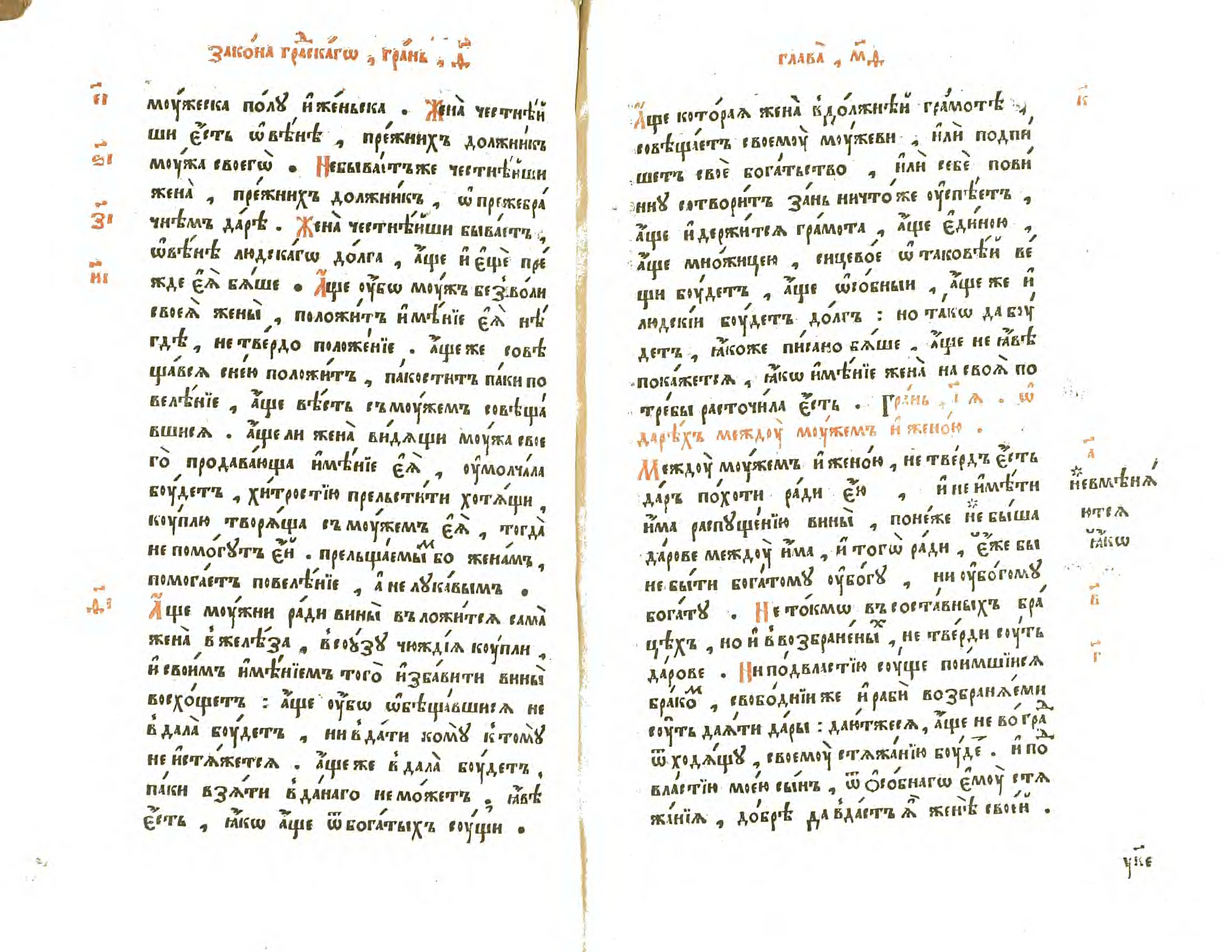 Зако́на гра́дскагѡ , гра́нь , д҃
є҃і
моу́жеска по́лу и҆же́ньска . Жена̀ честнѣ́й
ши є҆́сть ѡ҆вѣ́нѣ , пре́жнихъ должни́къ
ѕ҃і
моу́жа своегѡ̀ . Небыва́етъже честнѣ́йши
жена̀ , пре́жнихъ должни́къ , ѡ҆прежебра́
з҃і
чнѣ́мъ да́рѣ . Жена̀ честнѣ́йши быва́етъ ,
ѡ҆вѣ́нѣ людска́гѡ до́лга , а҆́ще и҆ є҆щѐ пре́
и҃і
жде є҆ѧ̀ бѧ́ше . А҆́ще оу҆́бѡ моу́жъ без̾во́ли
своеѧ̀ жены̀ , положи́тъ и҆мѣ́нїе є҆ѧ̀ нѣ́
гдѣ , не тве́рдо положе́нїе . а҆́ще же совѣ
ща́всѧ сне́ю положи́тъ , па́коститъ па́ки по
велѣ́нїе , а҆́ще вѣ́сть съмоу́жемъ совѣща́
вшисѧ . а҆́ще ли жена̀ ви́дѧщи моу́жа свое
го̀ продаваю́ща и҆мѣ́нїе є҆ѧ̀ , оу҆молча́ла
боу́детъ , хи́тростїю прельсти́ти хотѧ́щи ,
коу́плю творѧ́ща съмоу́жемъ є҆ѧ̀ , тогда̀
не помо́гутъ є҆́й . прельща́емымъ бо жена́мъ ,
помога́етъ повелѣ́нїе , а҆ не лука́вымъ .
д҃і
А҆́ще моу́жни ра́ди вины̀ въложи́тсѧ сама̀
жена̀ в̾желѣ́за , в̾соу́зу чюжді́ѧ коу́пли ,
и҆ свои́мъ и҆мѣ́нїемъ того̀ и҆зба́вити вины̀
восхо́щетъ : а҆́ще оу҆́бѡ ѡ҆бѣща́вшисѧ не
в̾дала̀ боу́детъ , ни в̾да́ти комꙋ̀ к̾томꙋ̀
не и҆стѧ́жетсѧ . а҆́ще же в̾дала̀ боу́детъ ,
па́ки взѧ́ти в̾да́наго не мо́жетъ . ꙗ҆́вѣ
є҆́сть , ꙗ҆́кѡ а҆́ще ѿ бога́тыхъ соу́щи .
глава̀ , м҃д
А҆́ще кото́раѧ жена̀ в̾до́лжнѣй гра́мотѣ ,
к҃
совѣща́етъ своемоу̀ моу́жеви , и҆лѝ подпи́
шетъ своѐ бога́тьство , и҆лѝ себѐ пови́
нну сотвори́тъ за́нь ничто́же оу҆спѣ́етъ ,
а҆́ще и҆ держи́тсѧ гра́мота , а҆́ще є҆ди́ною ,
а҆́ще мно́жицею , сицево́е ѡ҆ тако́вѣй ве́
щи боу́детъ , а҆́ще ѡ҆со́бныи , а҆́ще же и҆
людскі́и боу́детъ до́лгъ : но та́кѡ да боу́
детъ , ꙗ҆́коже пи́сано бѧ́ше , а҆́ще не ꙗ҆́вѣ
пока́жетсѧ , ꙗ҆́кѡ и҆мѣ́нїе жена̀ на своѧ̀ по
тре́бы расточи́ла є҆́сть . Гра́нь є҃ ѧ . ѡ҆
да́рѣхъ междоу̀ моу́жемъ и҆ жено́ю .
а҃
Междоу̀ моу́жемъ и҆ жено́ю , не тве́рдъ є҆́сть
*не вмѣнѧ́
да́ръ по́хоти ра́ди є҆ю̀ , и҆ не и҆мѣ́ти
ютсѧ
и҆́ма распуще́нїю вины̀ , поне́же *не бы́ша
ꙗ҆́кѡ
да́рове междоу̀ и҆́ма , и҆ тогѡ̀ ра́ди , є҆́же бы
не бы́ти бога́тому оу҆бо́гу , ни оу҆бо́гому
в҃
бога́ту . Не то́кмѡ въ соста́вныхъ бра́
цѣхъ , но и҆ в̾возбране́ныхъ , не тве́рди соу́ть
г҃
да́рове . Ни подвла́стїю соу́ще пои́мшїисѧ
бра́комъ , свобо́днїи же и҆ рабѝ возбранѧ́еми
соу́ть даѧ́ти да́ры : даю́тжесѧ , а҆́ще не во гра́д
ѿходѧ́щу , своемоу̀ стѧжа́нїю боу́де . и҆ по
вла́стїю мое́ю сы́нъ , ѿ ѻ҆со́бнагѡ є҆моу̀ стѧ
жа́нїѧ , до́брѣ да в̾да́стъ ѧ҆̀ женѣ̀ свое́й .
у҃ке